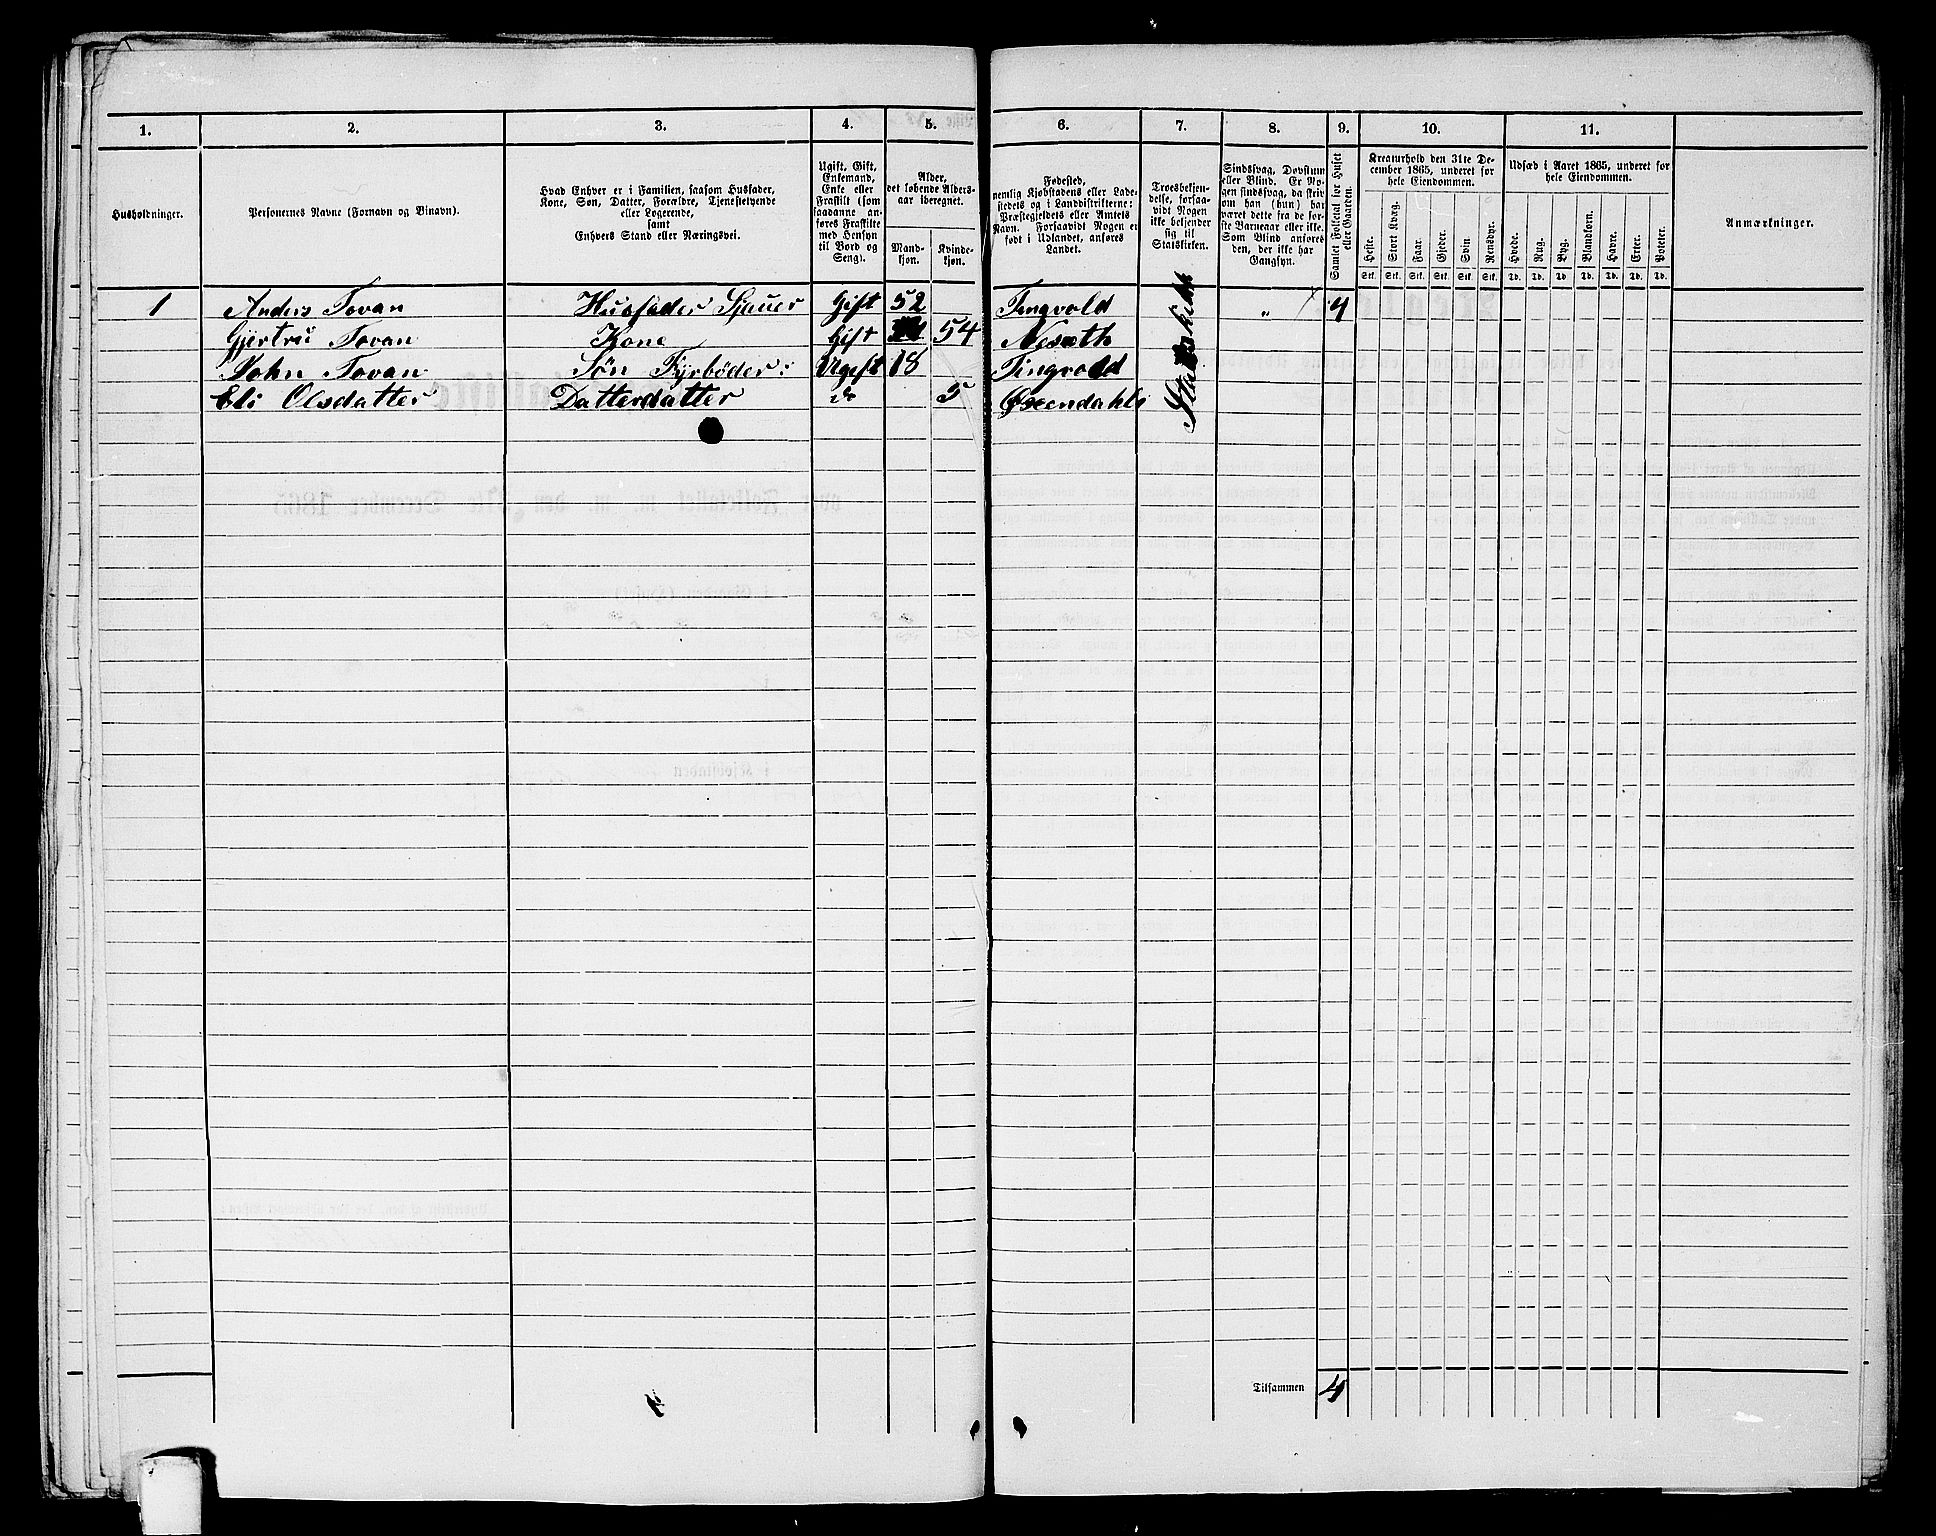 1. 2. 3. 4. 5. 6. 7. 8. 9. 10. 11.
Husholdninger.
Personernes Navne (Fornavn og Binavn).
Hvad Enhver er i Familien, saasom Husfader,
Kone, Søn, Datter, Forældre, Tjenestetyende
eller Logerende,
samt
Enhvers Stand eller Næringsvei.
Ugift, Gift,
Enkemand,
Enke eller
Fraskilt (som
saadanne an-
føres Fraskilte
med Hensyn
til Bord og
Seng).
Alder,
det løbende Alders-
aar iberegnet.
Mand-
kjøn.
Kvinde-
kjøn.
Fødested,
nemlig Kjøbstadens eller Lade-
stedets og i Landdistrikterne:
Præstegjeldets eller Amtets
Navn. Forsaavidt Nogen er
født i Udlandet, anføres
Landet.
Troesbekjen-
delse, forsaa-
vidt Nogen
ikke bekjender
sig til
Statskirken.
Sindssvag, Døvstum
eller Blind. Er No-
gen sindssvag, da skriv
om han (hun) har
været dette fra de før-
ste Barneaar eller ikke.
Som Blind anføres
den, der ikke har
Gangsyn.
Samlet Folketal for Huset
eller Gaarden.
Kreaturhold den 31te De-
cember 1865, underet for
hele Eiendommen.
Heste. Stort Kvæg. Faar. Gjeder. Svin. Rensdyr.
Stk. Stk. Stk. Stk. Stk. Stk.
Udsæd i Aaret 1865, underet for
hele Eiendommen.
Hvede. Rug. Byg. Blandkorn. Havre. Erter. Poteter.
Td. Td. Td. Td. Td. Td. Td.
Anmærkninger.
1 Anders Tovan Husfader Sjauer Gift 52 Tingvold " 4
Gjertru Tovan Kone Gift 54
John Tovan Søn Fyrbøder: Ugift 18 Tingvold
Eli Olsdatter Datterdatter do 5
Tilsammen 4